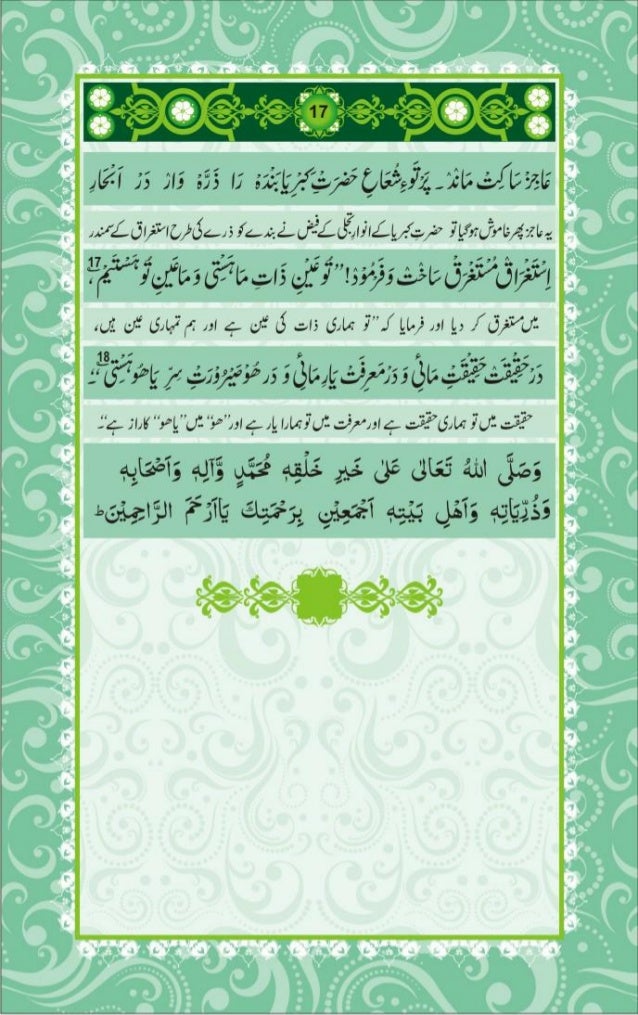 17
عَاجِزْ سَاکِتْ مَانْد۔ پَرْتَوءِ شُعَاعِ حَضْرَتِ کِبْرِیَا بَنْدَہْ رَا ذَرَّہْ وَارْ دَرْ اَبْحَارِ
یہ عاجز پھر خاموش ہوگیا تو حضرتِ کبریا کے انوارِ تجلی کے فیض نے بندے کو ذرے کی طرح استغراق کے سمندر
اِسْتِغْرَاقْ مُسْتَغْرَقْ سَاخْتْ وَ فَرْمُوْدْ! "تُو عَیْنِ ذَاتِ مَا ہَسْتِی وَ مَا عَیْنِ تُو ہَسْتَیْم،17
میں مستغرق کر دیا اور فرمایا کہ "تو ہماری ذات کی عین ہے اور ہم تمہاری عین ہیں،
دَرْ حَقِیْقَتْ حَقِیْقَتِ مَائِی وَ دَرْ مَعْرِفَتْ یَارِ مَائِی وَ دَر ھُوْ صَیْرُوْرَتِ سِرِّ یَاھُو ہَسْتِی18"۔
حقیقت میں تو ہماری حقیقت ہے اور معرفت میں تو ہمارا یار ہے اور "ھو" میں "یاھو" کا راز ہے"۔
وَصَلَّی اللہُ تَعَالٰی عَلٰی خَیْرِ خَلْقِہٖ مُحَمَّدٍ وَّاٰلِہٖ وَاَصْحَابِہٖ
وَذُرِّیَاتِہٖ وَاَھْلِ بَیْتِہٖ اَجْمَعِیْنِ بِرَحْمَتِكَ یَااَرْحَمَ الرَّاحِمِیْنَ ط